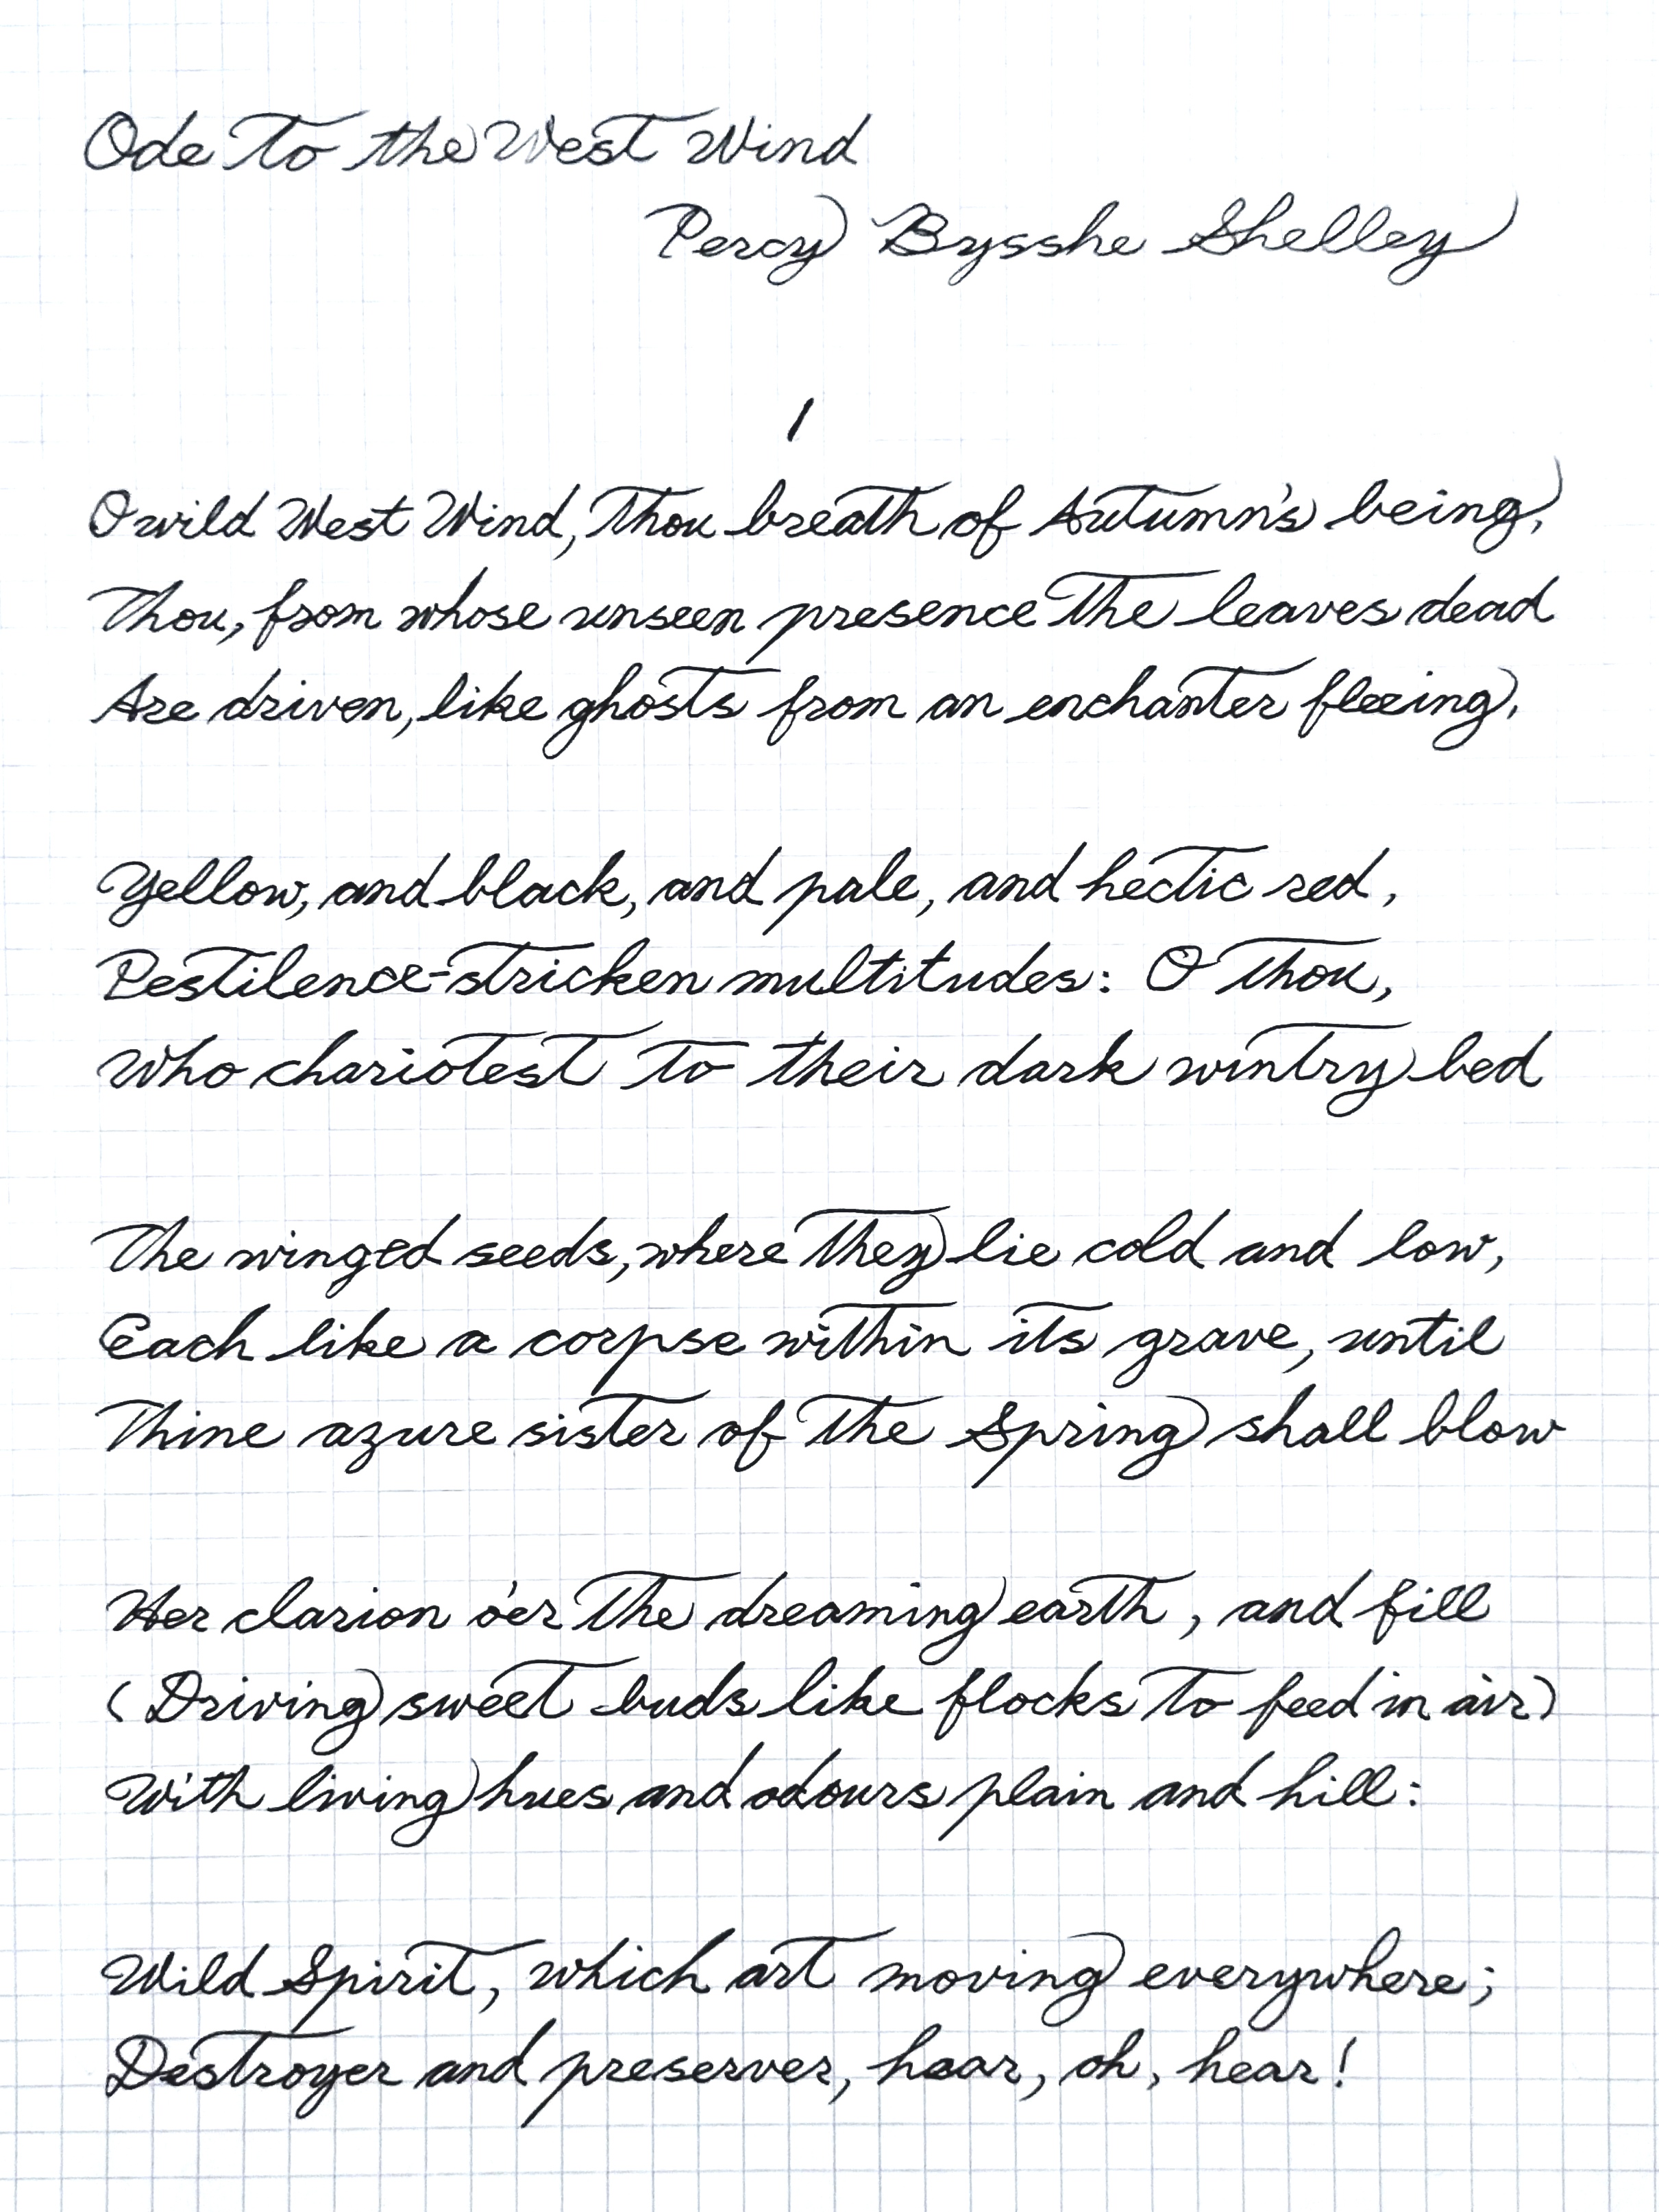 Ode to the West Wind
Percy Bysshe Shelley
1
O wild West Wind, thou breath of Autumn's being,
Thou, from whose unseen presence the leaves dead
Are driven, like ghosts from an enchanter fleeing,
Yellow, and black, and pale, and hectic red,
Pestilence-stricken multitudes: O thou,
Who chariotest to their dark wintry bed
The winged seeds, where they lie cold and low,
Each like a corpse within its grave, until
Thine azure sister of the Spring shall blow
Her clarion o'er the dreaming earth, and fill
(Driving sweet buds like flocks to feed in air)
With living hues and odours plain and hill:
Wild Spirit, which art moving everywhere;
Destroyer and preserver, hear, oh, hear!